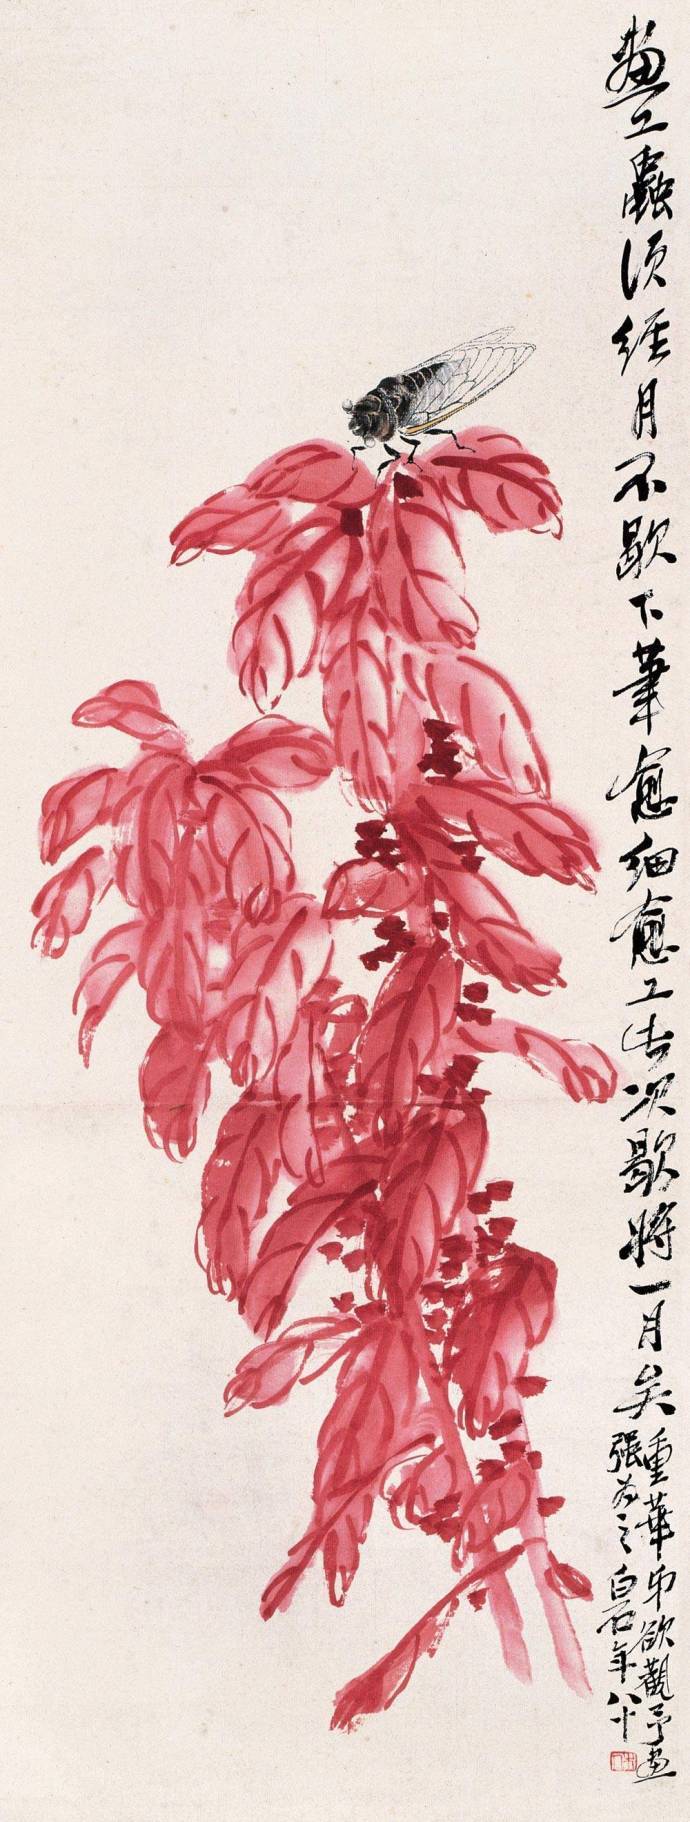 畫工蟲須經月不歇下筆愈細愈工此次歇將一月矣
重華弟欲觀予畫
强為之白石年八十